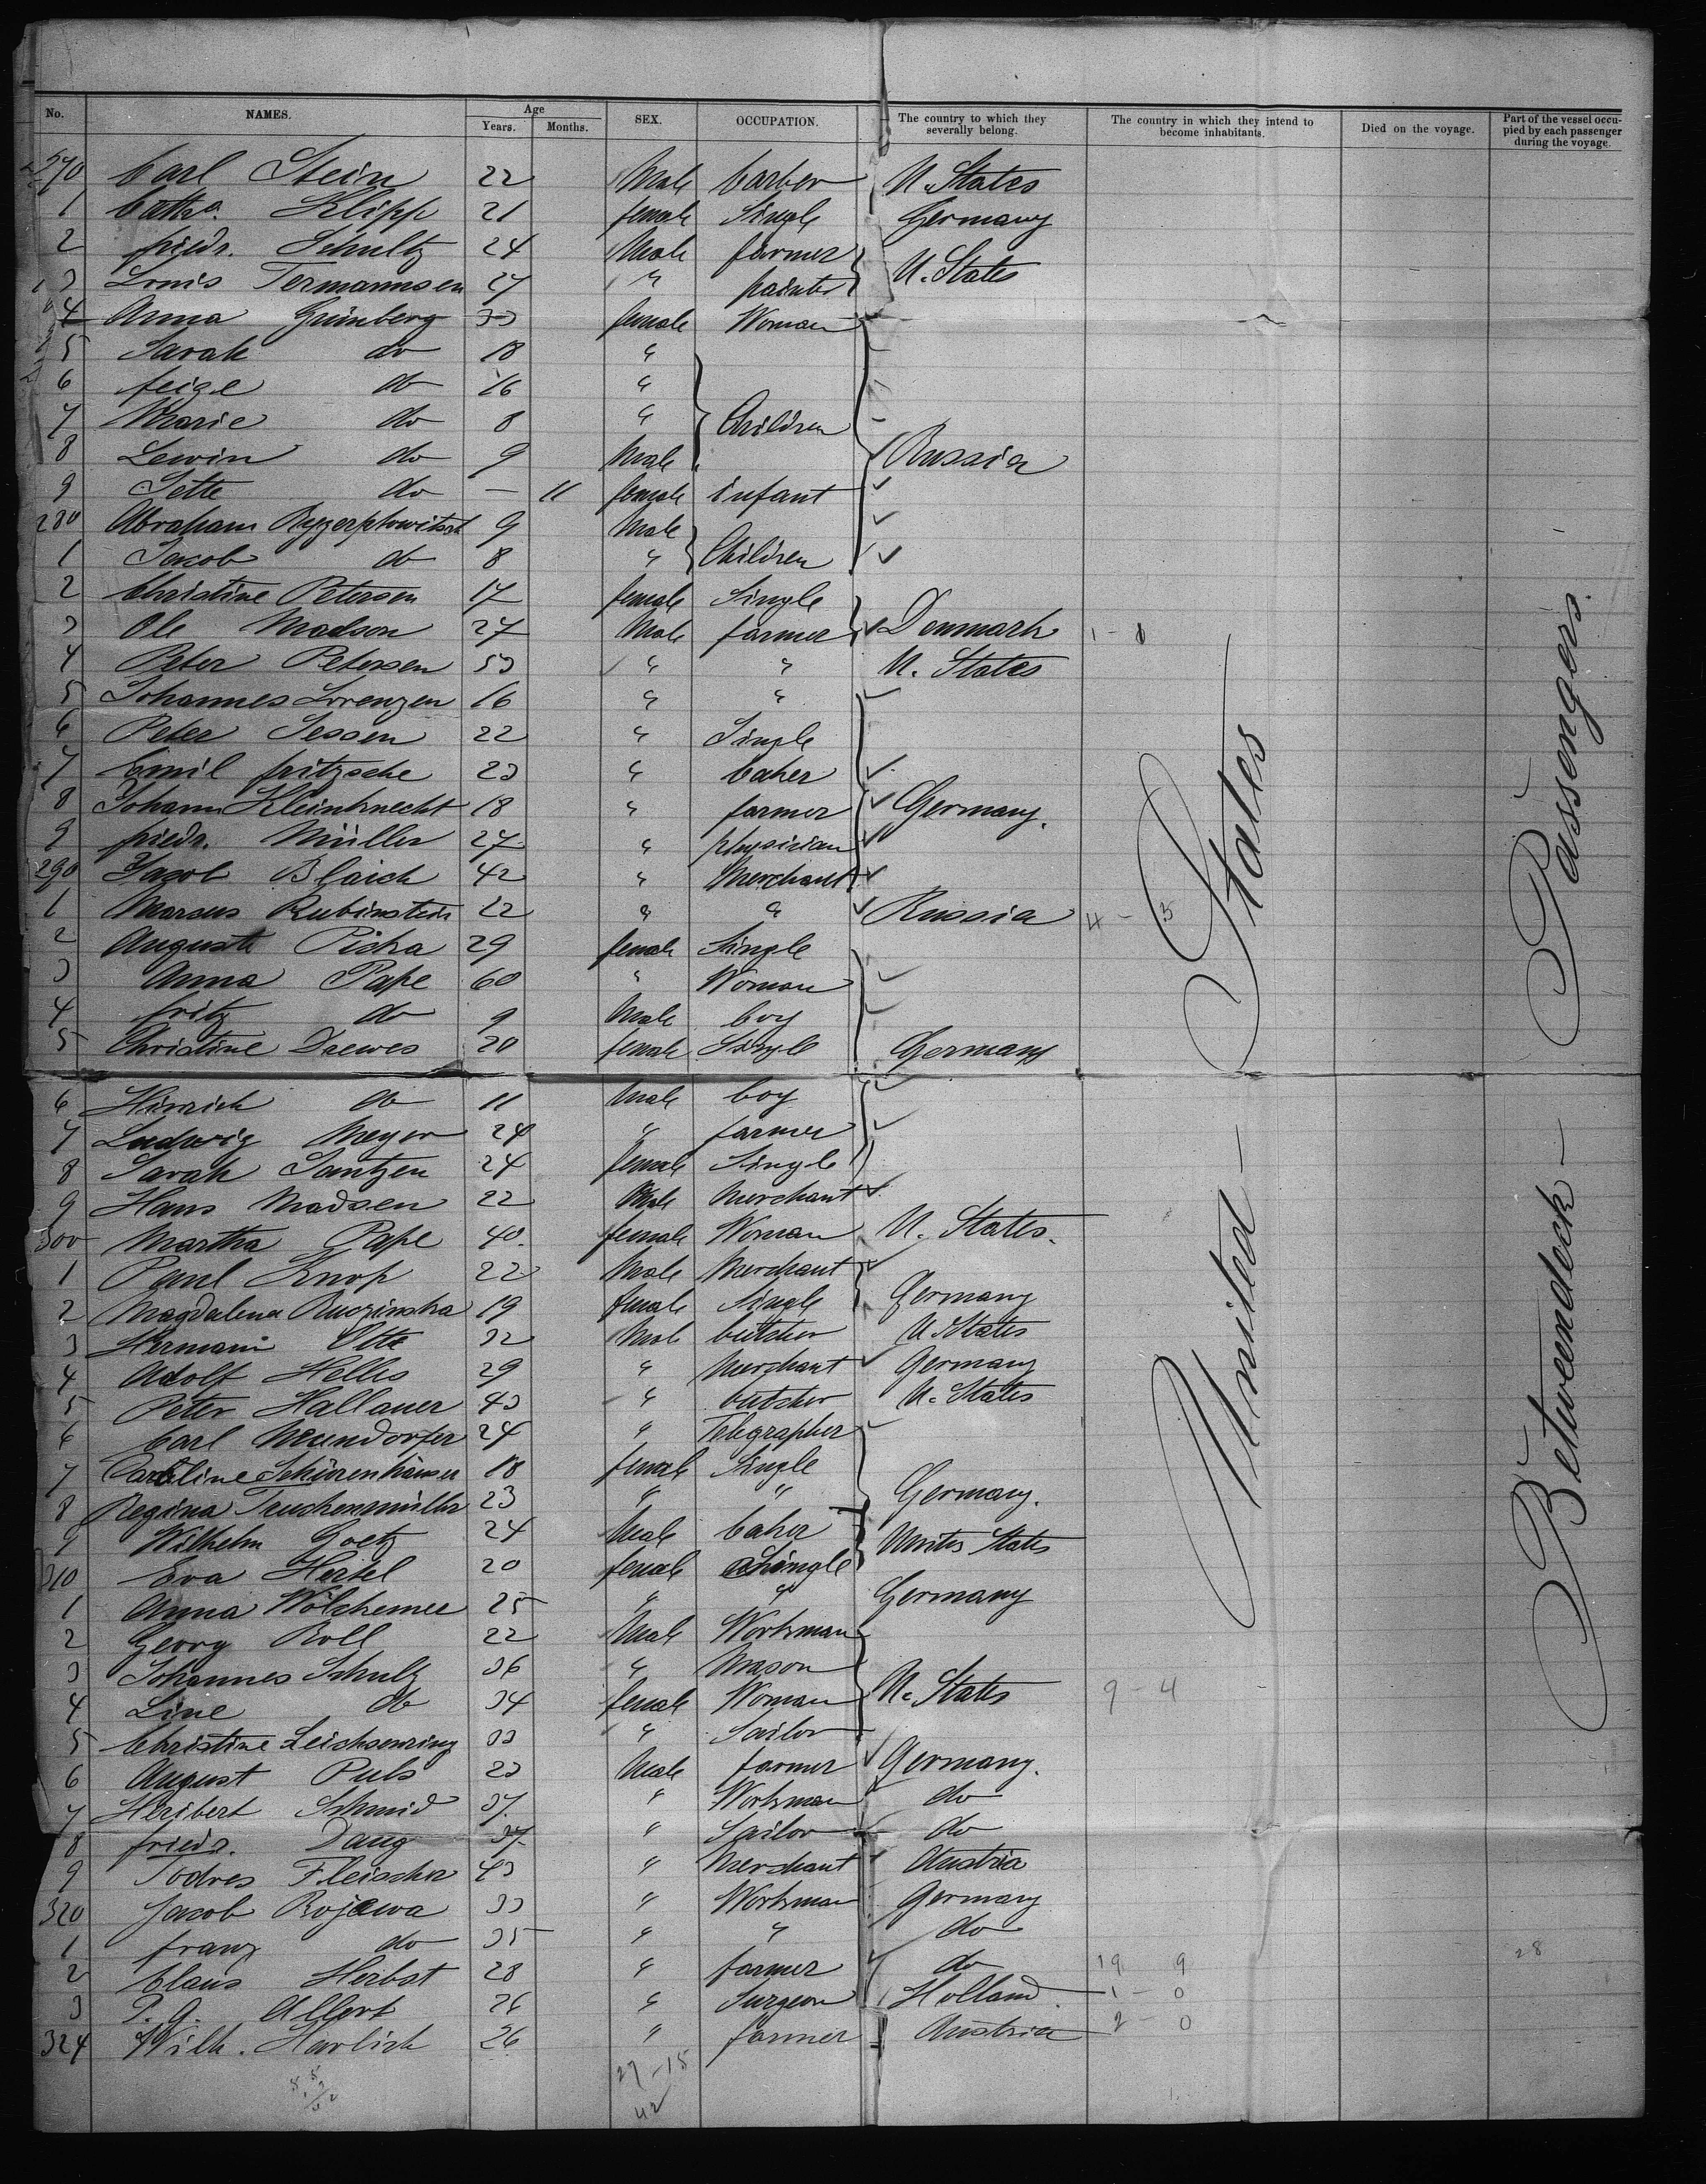 No. NAMES. Age Years. Months. SEX. OCCUPATION. The country to which they severally belong. The country in which they intend to become inhabitants. Died on the voyage. Part of the vessel occupied by each passenger during the voyage.
270 Carl Stein 22 Male barber U. States
1 Catha. Klipp 21 female Single Germany
2 friedr. Schultz 24 Male farmer
3 Louis Termannsen 27 " painter U. States
4 Anna Grünberg 33 female Woman
5 Sarah do 18 "
6 feige do 16 "
7 Marie do 8 " Children
8 Lewin do 9 Male Russia
9 Jette do — 11 female infant
280 Abraham 9 Male
1 Jacob do 8 " Children
2 Christine Petersen 17 female Single
3 Ole Madson 27 Male farmer Denmark 1 - 0
4 Peter Petersen 53 " " U. States
5 Johannes Lorenzen 16 " "
6 Peter Jessen 22 " Single
7 Emil fritzsche 23 " baker
8 Johann Kleinknecht 18 " farmer Germany.
9 friedr. Müller 27 " physician
290 Jacob Blaich 42 " Merchant
1 Marcus Rubinstein 22 " " Russia 4 - 3
2 Auguste Picha 29 female Single
3 Anna Pape 60 " Woman
4 fritz do 9 Male boy
5 Christine Drewes 20 female Single Germany
6 Hinrich do 11 Male boy
7 Ludwig Meyer 24 " farmer
8 Sarah Jantzen 24 female Single
9 Hans Madsen 22 Male Merchant
300 Martha Pape 40. female Woman U. States.
1 Paul Knop 22 Male Merchant
2 Magdalena Ruczinska 19 female Single Germany
3 Hermann Otte 32 Male butcher U. States
4 Adolf Helles 29 " Merchant Germany
5 Peter Hallauer 43 " butcher U. States
6 Carl Neundorfer 24 " Telegrapher
7 Caroline Schürenhäuser 18 female Single
8 Regina 23 " " Germany.
9 Wilhelm Goetz 24 Male baker United States
310 Eva Hertel 20 female Single
1 Anna Wölchemer 25 " " Germany
2 Georg Roll 22 Male Workman
3 Johannes Schultz 36 " Mason
4 Line do 34 female Woman U. States 9 - 4
5 Christine Leichsenring 33 " Sailor
6 August Puls 23 Male farmer Germany.
7 Heribert Schmid 37. " Workman do
8 friedr. Dang 37 " Sailor do
9 Todres Fleischer 43 " Merchant Austria
320 Jacob Rojewa 33 " Workman Germany
1 franz do 35 " " do
2 Claus Herbst 28 " farmer do 19 9
3 P. A. Albert 26 " Surgeon Holland. 1 - 0
324 Wilh. Harlich 26 " farmer Austria 2 - 0
27 - 15
42
28
United States
Betweendeck - Passengers.